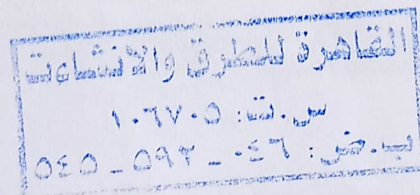 القاهرة للطرق والانشاءات
س.ت: ١٠٦٧٠٥
ب.ض: ٠٤٦ - ٥٩٣ - ٥٤٥